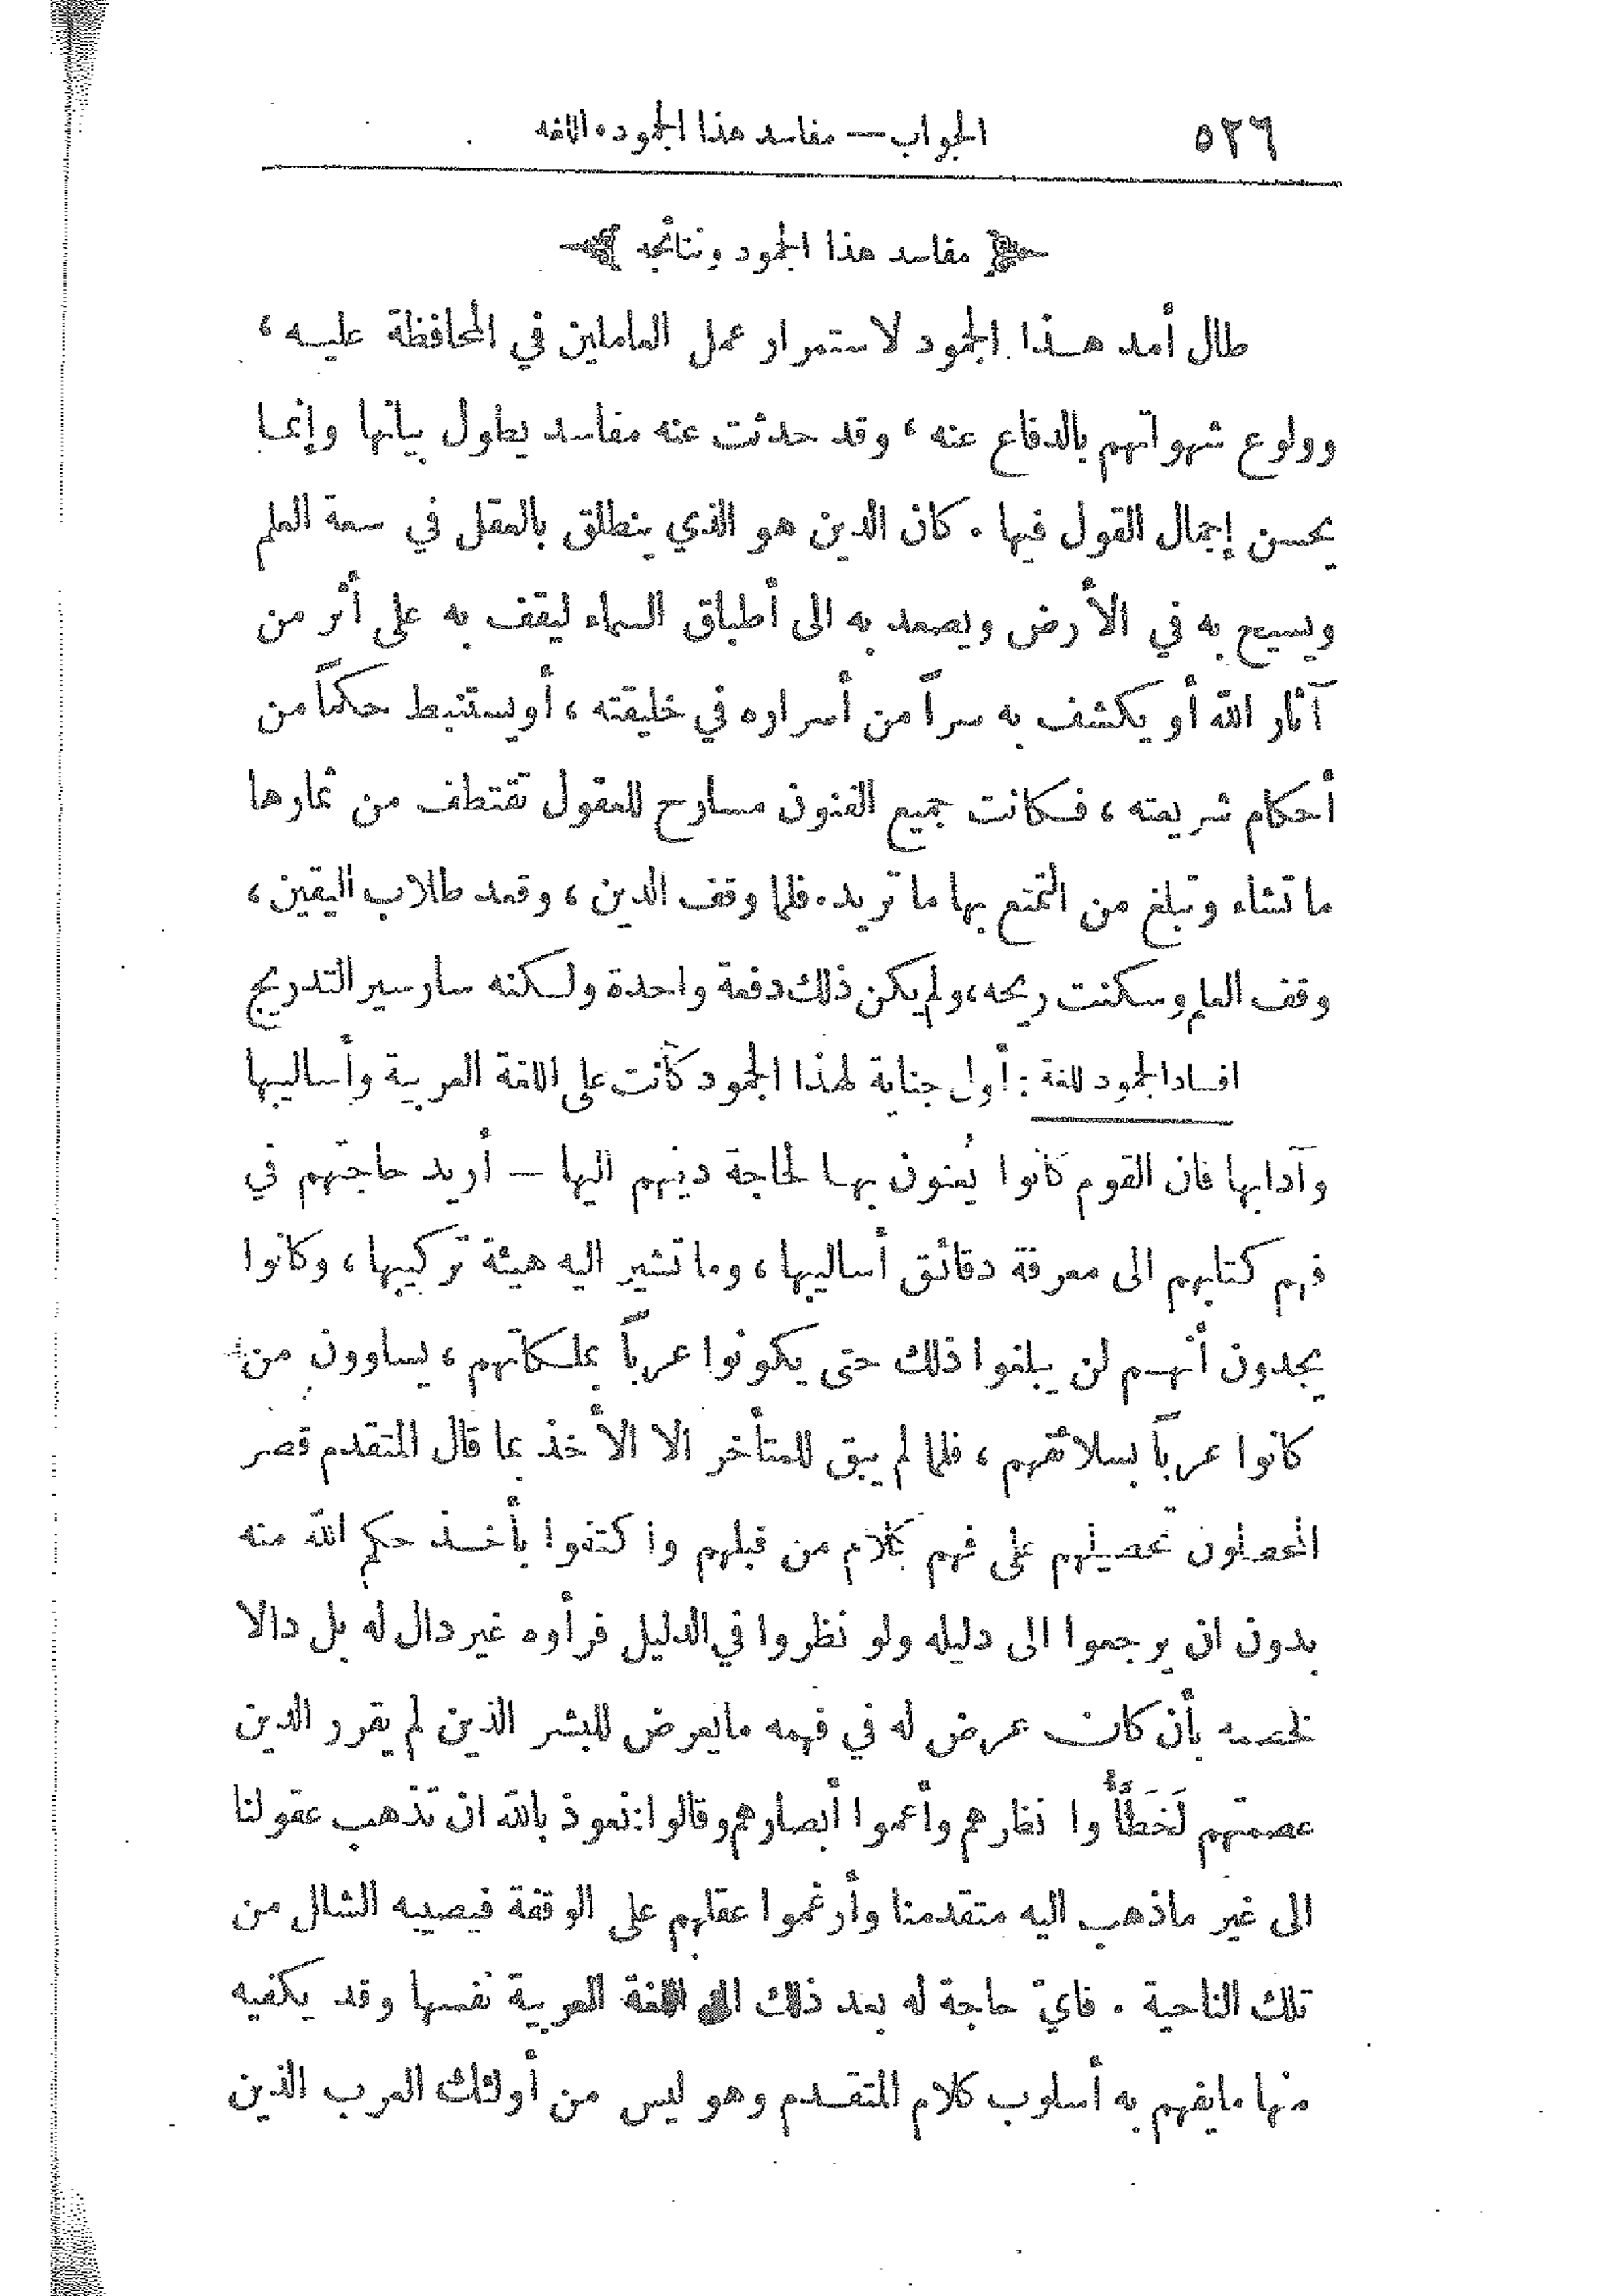 ٥٢٦ الجواب — مفاسد هذا الجمود. اللغة
مفاسد هذا الجمود ونتائجه
طال أمد هذا الجمود لاستمرار عمل العاملين في المحافظة عليه ،
وولوع شهواتهم بالدفاع عنه ، وقد حدثت عنه مفاسد يطول بيانها وإنما
يحسن إجمال القول فيها . كان الدين هو الذي ينطلق بالعقل في سعة العلم
ويسيح به في الأرض ويصعد به الى أطباق السماء ليقف به على أثر من
آثار الله أو يكشف به سراً من أسراره في خليقته ، أو يستنبط حكماً من
أحكام شريعته ، فكانت جميع الفنون مسارح للعقول تقتطف من ثمارها
ما تشاء وتبلغ من التمتع بها ما تريد . فلما وقف الدين ، وقعد طلاب اليقين ،
وقف العلم وسكنت ريحه ، ولم يكن ذلك دفعة واحدة ولكنه سار سير التدريج
افساد الجمود للغة : أول جناية لهذا الجمود كانت على اللغة العربية وأساليبها
وآدابها فان القوم كانوا يُعنون بها لحاجة دينهم اليها — أريد حاجتهم في
فهم كتابهم الى معرفة دقائق أساليبها ، وما تشير اليه هيئة تركيبها ، وكانوا
يجدون أنهم لن يبلغوا ذلك حتى يكونوا عرباً بملكاتهم ، يساوون من
كانوا عرباً بسلائقهم ، فلما لم يبق للمتأخر الا الأخذ بما قال المتقدم قصر
المحصلون تحصيلهم على فهم كلام من قبلهم واكتفوا بأخذ حكم الله منه
بدون ان يرجعوا الى دليله ولو نظروا في الدليل فرأوه غير دال له بل دالا
لخصمه بأن كان عرض له في فهمه ما يعرض للبشر الذين لم يقرر الدين
عصمتهم لَخَطَّأُوا نظرهم وأعموا أبصارهم وقالوا : نعوذ بالله ان تذهب عقولنا
الى غير ما ذهب اليه متقدمنا وأرغموا عقلهم على الوقفة فيصيبه الشلل من
تلك الناحية . فايّ حاجة له بعد ذلك الى اللغة العربية نفسها وقد يكفيه
منها ما يفهم به أسلوب كلام المتقدم وهو ليس من أولئك العرب الذين